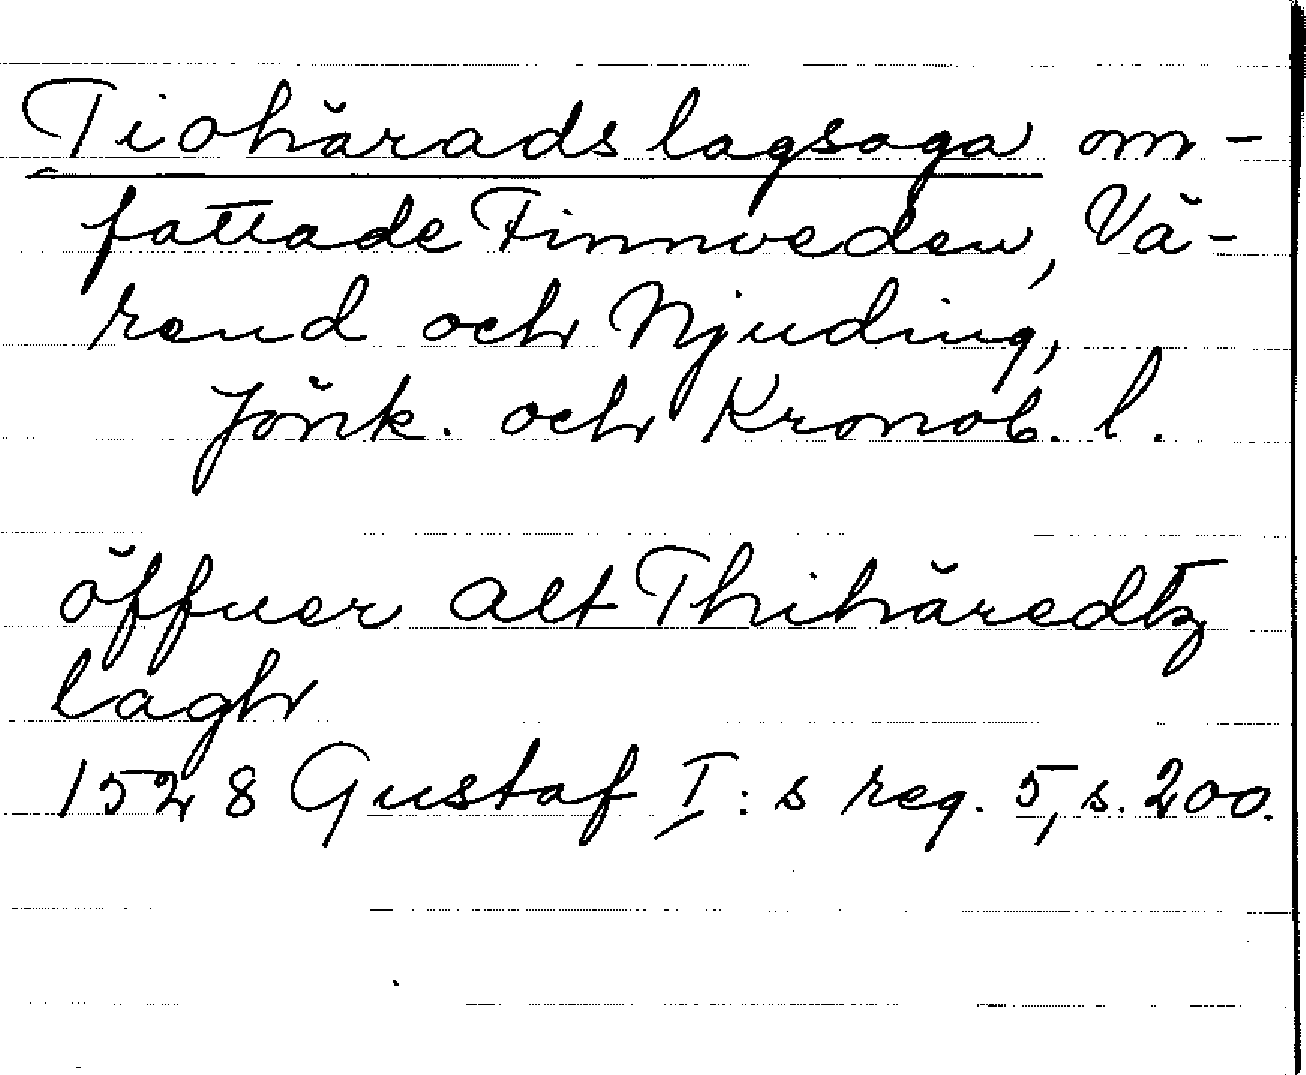 Tiohärads lagsaga om-
fattade Finnveden, Vä-
rend och Njuding,
Jönk. och Kronob. l.
öffuer alt Thihäredtz
lagh
1528 Gustaf I:s reg. 5, s. 200.